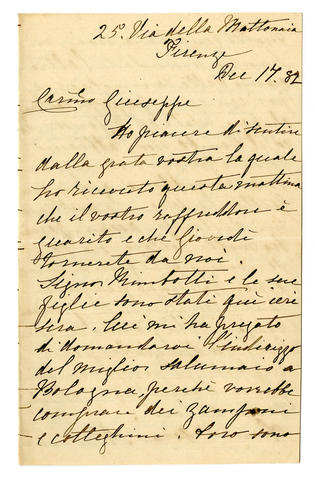 25. Via della Mattonaia
Firenze
Dec 17. 82
Carmo Giuseppe
Ho piacere di sentire
dalla grata vostra la quale
ho ricevuto questa mattina
che il vostro raffreddore è
guarito e che Giovedì
tornerete da noi.
Signor Rimbotti e le sue
figlie sono stati qui ieri
sera. Lui mi ha pregato
di domandarvi l'indirizzo
del miglior salumaio a
Bologna, perchè vorrebbe
comprare dei zamponi
e cotteghini. Loro sono